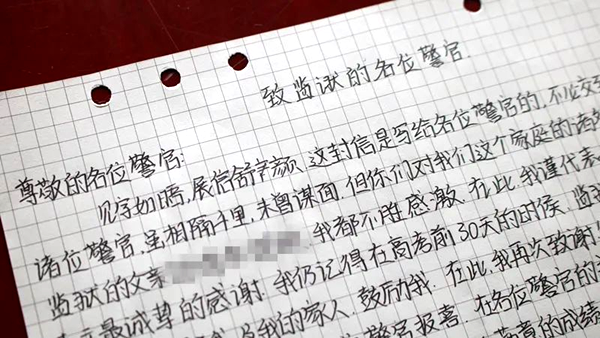 致监狱的各位警官
尊敬的各位警官:
见字如晤,展信舒颜,这封信是写给各位警官的,不论交到
诸位警官,虽相隔千里,未曾谋面,但你们对我们这个家庭的
监狱的父亲 我都不胜感激.在此,我谨代表
最诚挚的感谢.我仍记得在高考前30天的时候,监狱
我的家人,鼓励我.在此,我再次致谢!
警官报喜.在各位警官的
的成绩